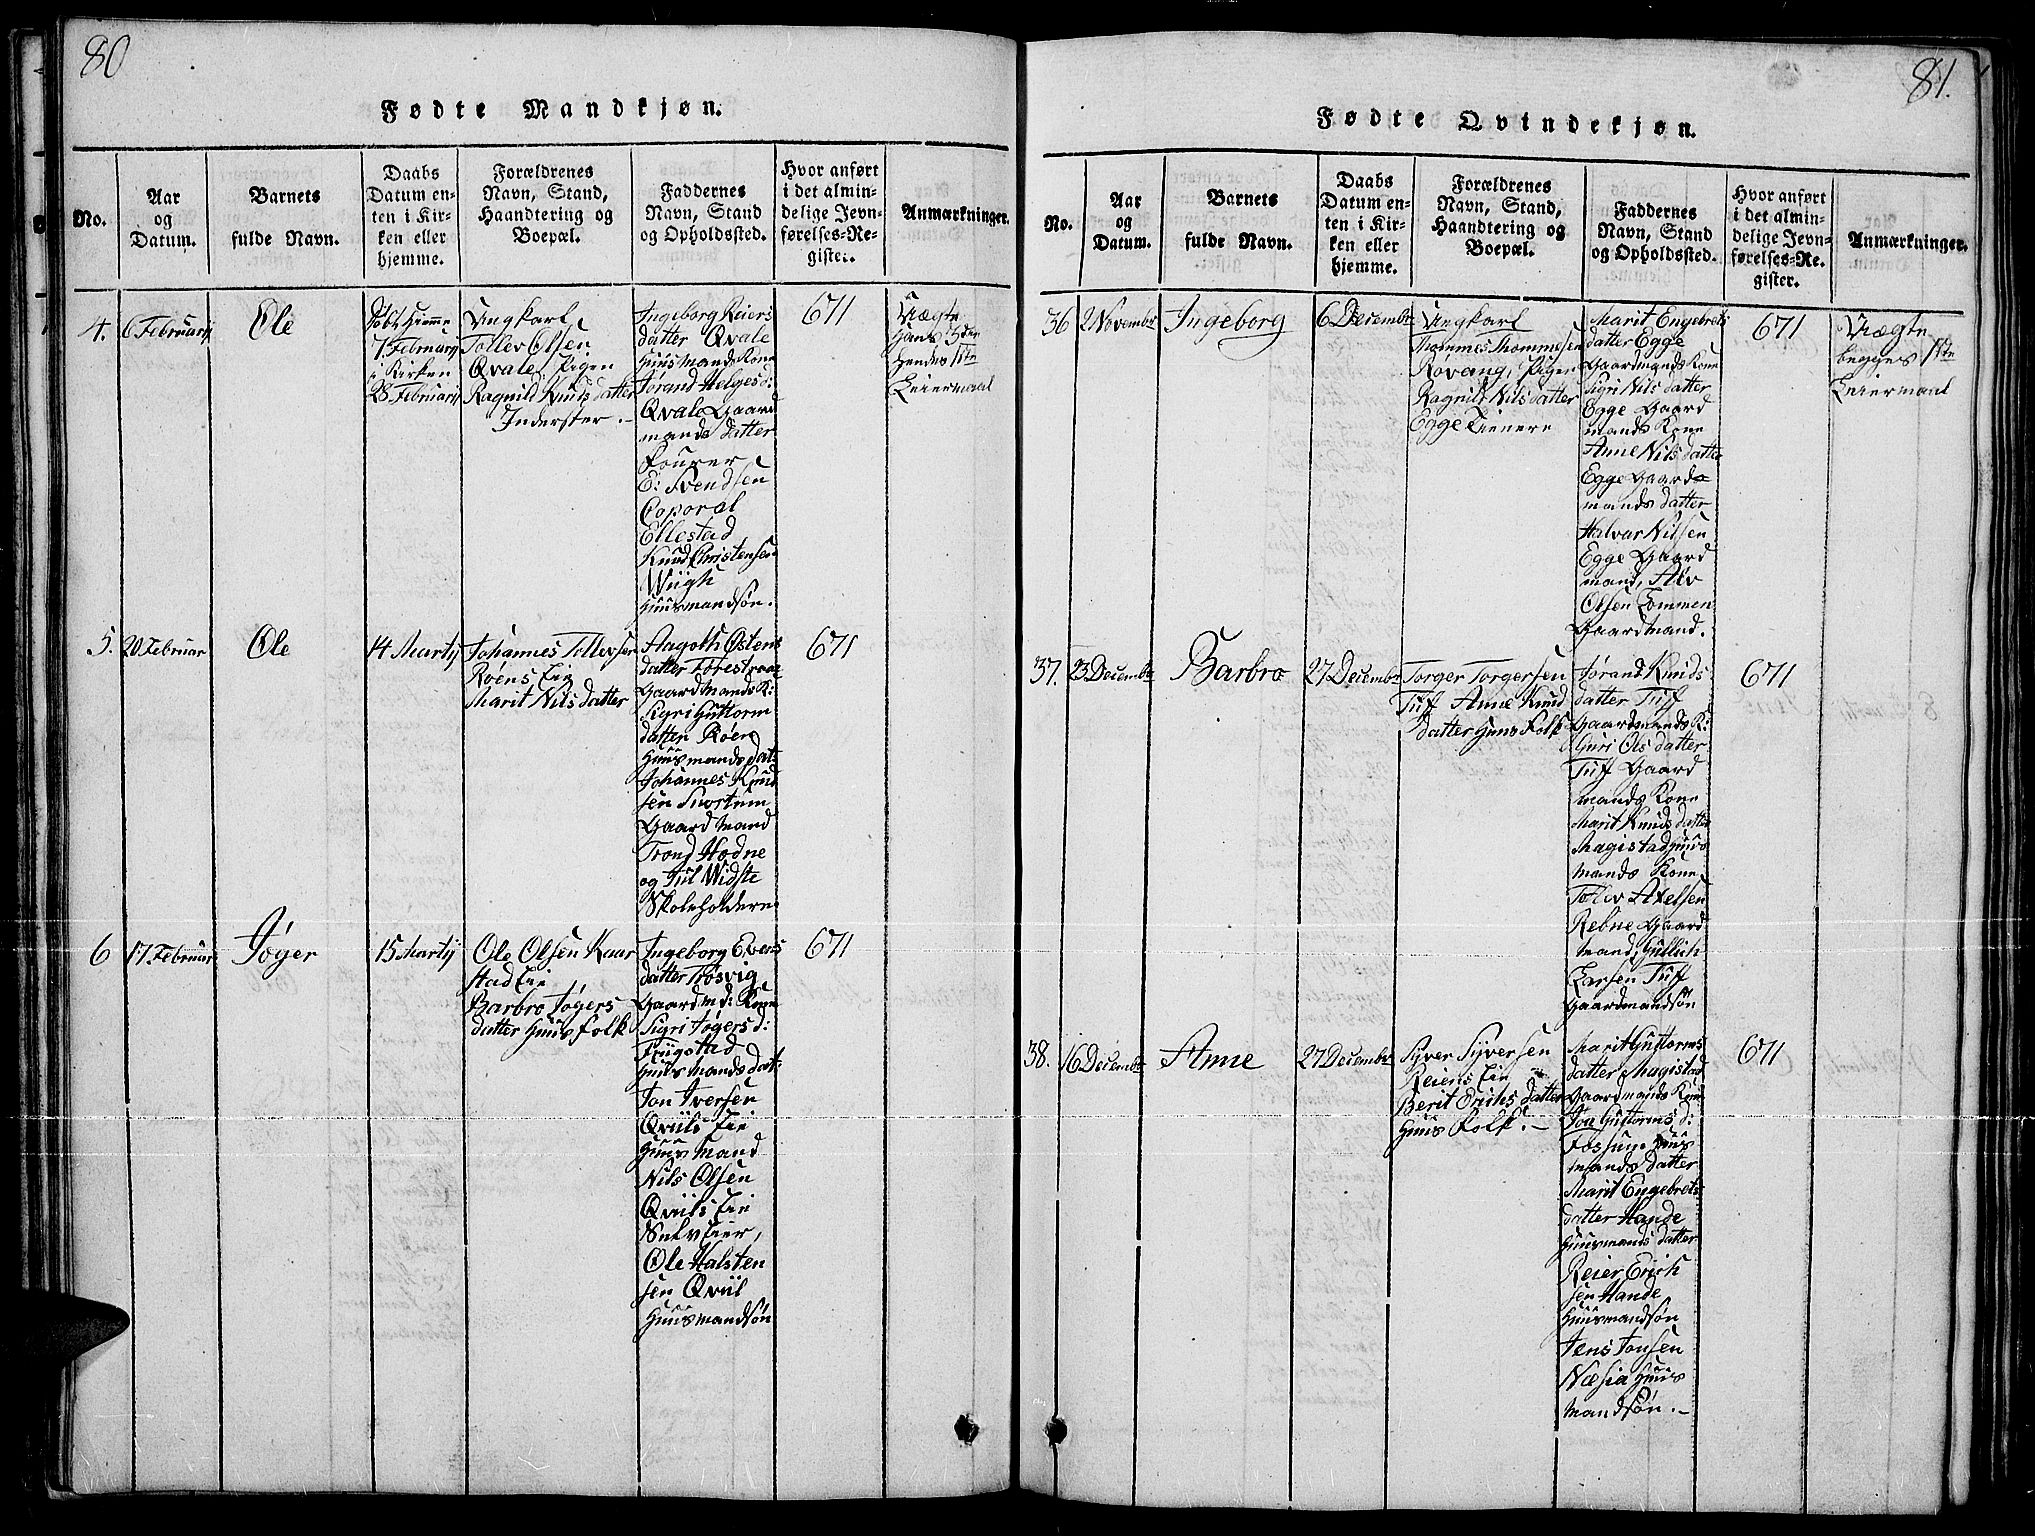 80
Fødte Mandkjøn.
No.
Aar
og
Datum.
Barnets
fulde Navn.
Daabs
Datum en-
ten i Kir-
ken eller
hjemme.
Forældrenes
Navn, Stand,
Haandtering og
Boepæl.
Faddernes
Navn, Stand
og Opholdssted.
Hvor anført
i det almin-
delige Jevn-
førelses-Re-
gister.
Anmærkninger.
4.
6 Februarij
Ole
Døbt Hiemme
7 Februarij
i Kirken
28 Februarij
Ungkarl
Tollev Olsen
Qvale Pigen
Ragnild Knuds datter
Inderster.
Ingeborg Reiers
datter Qvale
Huusmands Kone
Jorand Helges d:
Qvale Gaard
mands datter
Fourer
E: Svendsen
Coporal
Ellestad
Knud Christensen
Wiigh
Huusmandsøn.
671
Uægte
Hans 3die
Hendes 1ste
Leiermaal
5.
20 Februar
Ole
14 Martij
Johannes Tollevsen
Roens Eie
Marit Nils datter
Aagoth Østens
datter
Gaardmands K:
Sigri Guttorm
datter Roen
Huusmands dat:
Johannes Knud
sen
Gaardmand
Trond Hodne
og Jul Widste
Skoleholdere
671
6
17 Februar
Jøger
15 Martij
Ole Olsen Kaar
stad Eie
Barbro Jøgers
datter Huusfolk
Ingeborg Evens
datter Trosvig
Gaardmd: Kone
Sigri Jøgers d:
Huusmands dat:
Jon Iversen
Qviils Eie
Huusmand
Nils Olsen
Qviils Eie
Selveier,
Ole Halsten
sen Qviil
Huusmandsøn
671
81.
Fødte Qvindekjøn.
No.
Aar
og
Datum.
Barnets
fulde Navn.
Daabs
Datum en-
ten i Kir-
ken eller
hjemme.
Forældrenes
Navn, Stand,
Haandtering og
Boepæl.
Faddernes
Navn, Stand
og Opholdssted.
Hvor anført
i det almin-
delige Jevn-
førelses-Re-
gister.
Anmærkninger.
36
2 November
Ingeborg
6 December
Ungkarl
Thommes Thommesen
Rovang, Pigen
Ragnild Nils datter
Egge Tienere
Marit Engebrets
datter Egge
Gaardmands Kone
Sigri Nils datter
Egge Gaard
mands Kone
Anne Nils datter
Egge Gaard-
mands datter
Halvar Nilsen
Egge Gaard
mand, Alv
Olsen Lommen
Gaardmand.
671
Uægte
begges 1ste
Leiermaal
37.
23 December
Barbro
27 December
Torger Torgersen
Tuff Anne Knud
datter Huusfolk
Jørand Knuds
datter Tuff
Gaardmands K:
Guri Ols datter
Tuff Gaard
mands Kone
Marit Knuds datter
Magistad Huus
mands Kone
Tolev Axelsen
Rebne Gaard
mand, Gullich
Larsen Tuff
Gaardmandsøn
671
38.
16 December
Anne
27 December
Syver Syversen
Reiens Eie
Berit Erichs datter
Huus Folk.-
Marit Guttorms
datter Magistad
Gaardmands Kone
Guttorms d:
Fossum Huus
mands datter
Marit Engebrets
datter Hande
Huusmands datter
Reier Erich
sen Hande
Huusmandsøn
Jens Jonsen
Huus
mandsøn.-
671